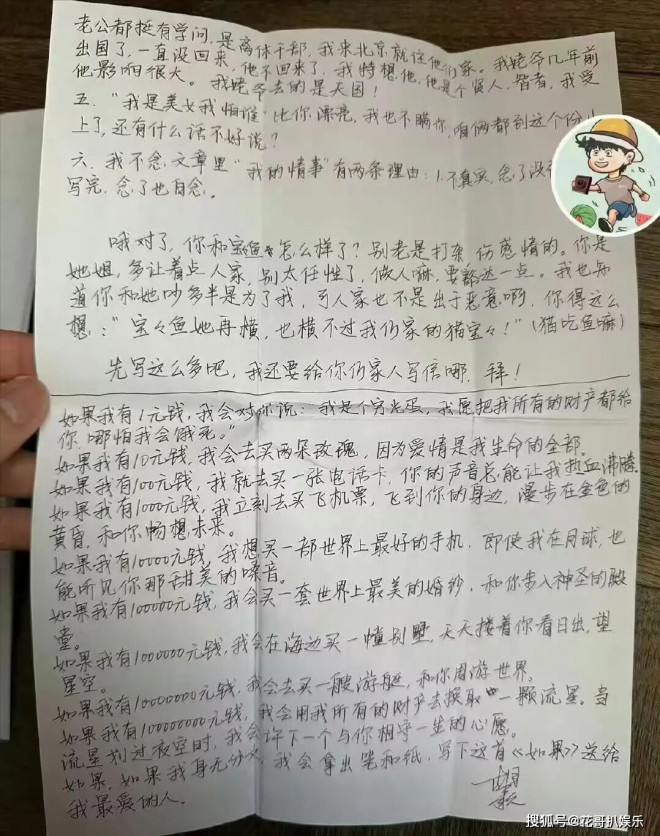 老公都挺有学问，是离休干部，我来北京就住他们家。我姥爷几年前
出国了，一直没回来，他不回来了，我特想他，他是个好人，智者，我受
他影响很大。我姥爷去的是天国！
五．“我是美女我怕谁”比你漂亮，我也不瞒你，咱俩都到这个份儿
上了，还有什么话不好说？
六．我不念文章里“我的情事”有两条理由：1.不真实，念了没
写完，念了也白念。
哦对了，你和宝鱼怎么样了？别老是打架伤感情的。你是
她姐，多让着点人家，别太任性了，做人嘛，要豁达一点。我也知
道你和她吵多半是为了我，可人家也不是出于恶意啊，你得这么
想：“宝々鱼她再横，也横不过我们家的猫宝々！”（猫吃鱼嘛）
先写这么多吧，我还要给你们家人写信哪．拜！
如果我有1元钱，我会对你说：我是个穷光蛋，我愿把我所有的财产都给
你，哪怕我会饿死。”
如果我有10元钱，我会去买两朵玫瑰，因为爱情是我生命的全部。
如果我有100元钱，我就去买一张电话卡，你的声音总能让我热血沸腾．
如果我有1000元钱，我立刻去买飞机票，飞到你的身边，漫步在金色的
黄昏，和你畅想未来。
如果我有10000元钱，我想买一部世界上最好的手机，即使我在月球，也
能听见你那甜美的嗓音。
如果我有100000元钱，我会买一套世界上最美的婚纱，和你步入神圣的殿
堂。
如果我有1000000元钱，我会在海边买一幢别墅，天天搂着你看日出，望
星空。
如果我有10000000元钱，我会去买一艘游艇，和你周游世界。
如果我有100000000元钱，我会用我所有的财产去换取一颗流星。当
流星划过夜空时，我会许下一个与你相守一生的心愿。
如果，如果我身无分文，我会拿出笔和纸，写下这首《如果》送给
我最爱的人．
搜狐号@花哥扒娱乐